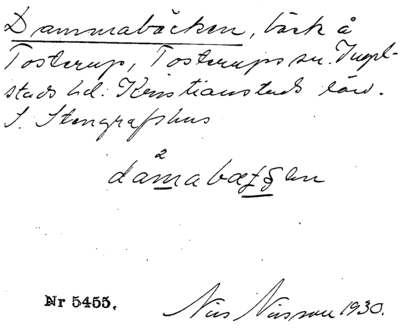 Dammabäcken, bäck å
Tosterup, Tosterups sn. Ingel-
stads hd. Kristianstads län.
S. Stengrafshus
2
dåmabæ
Nr 5455.
Nils Nilsson 1930.